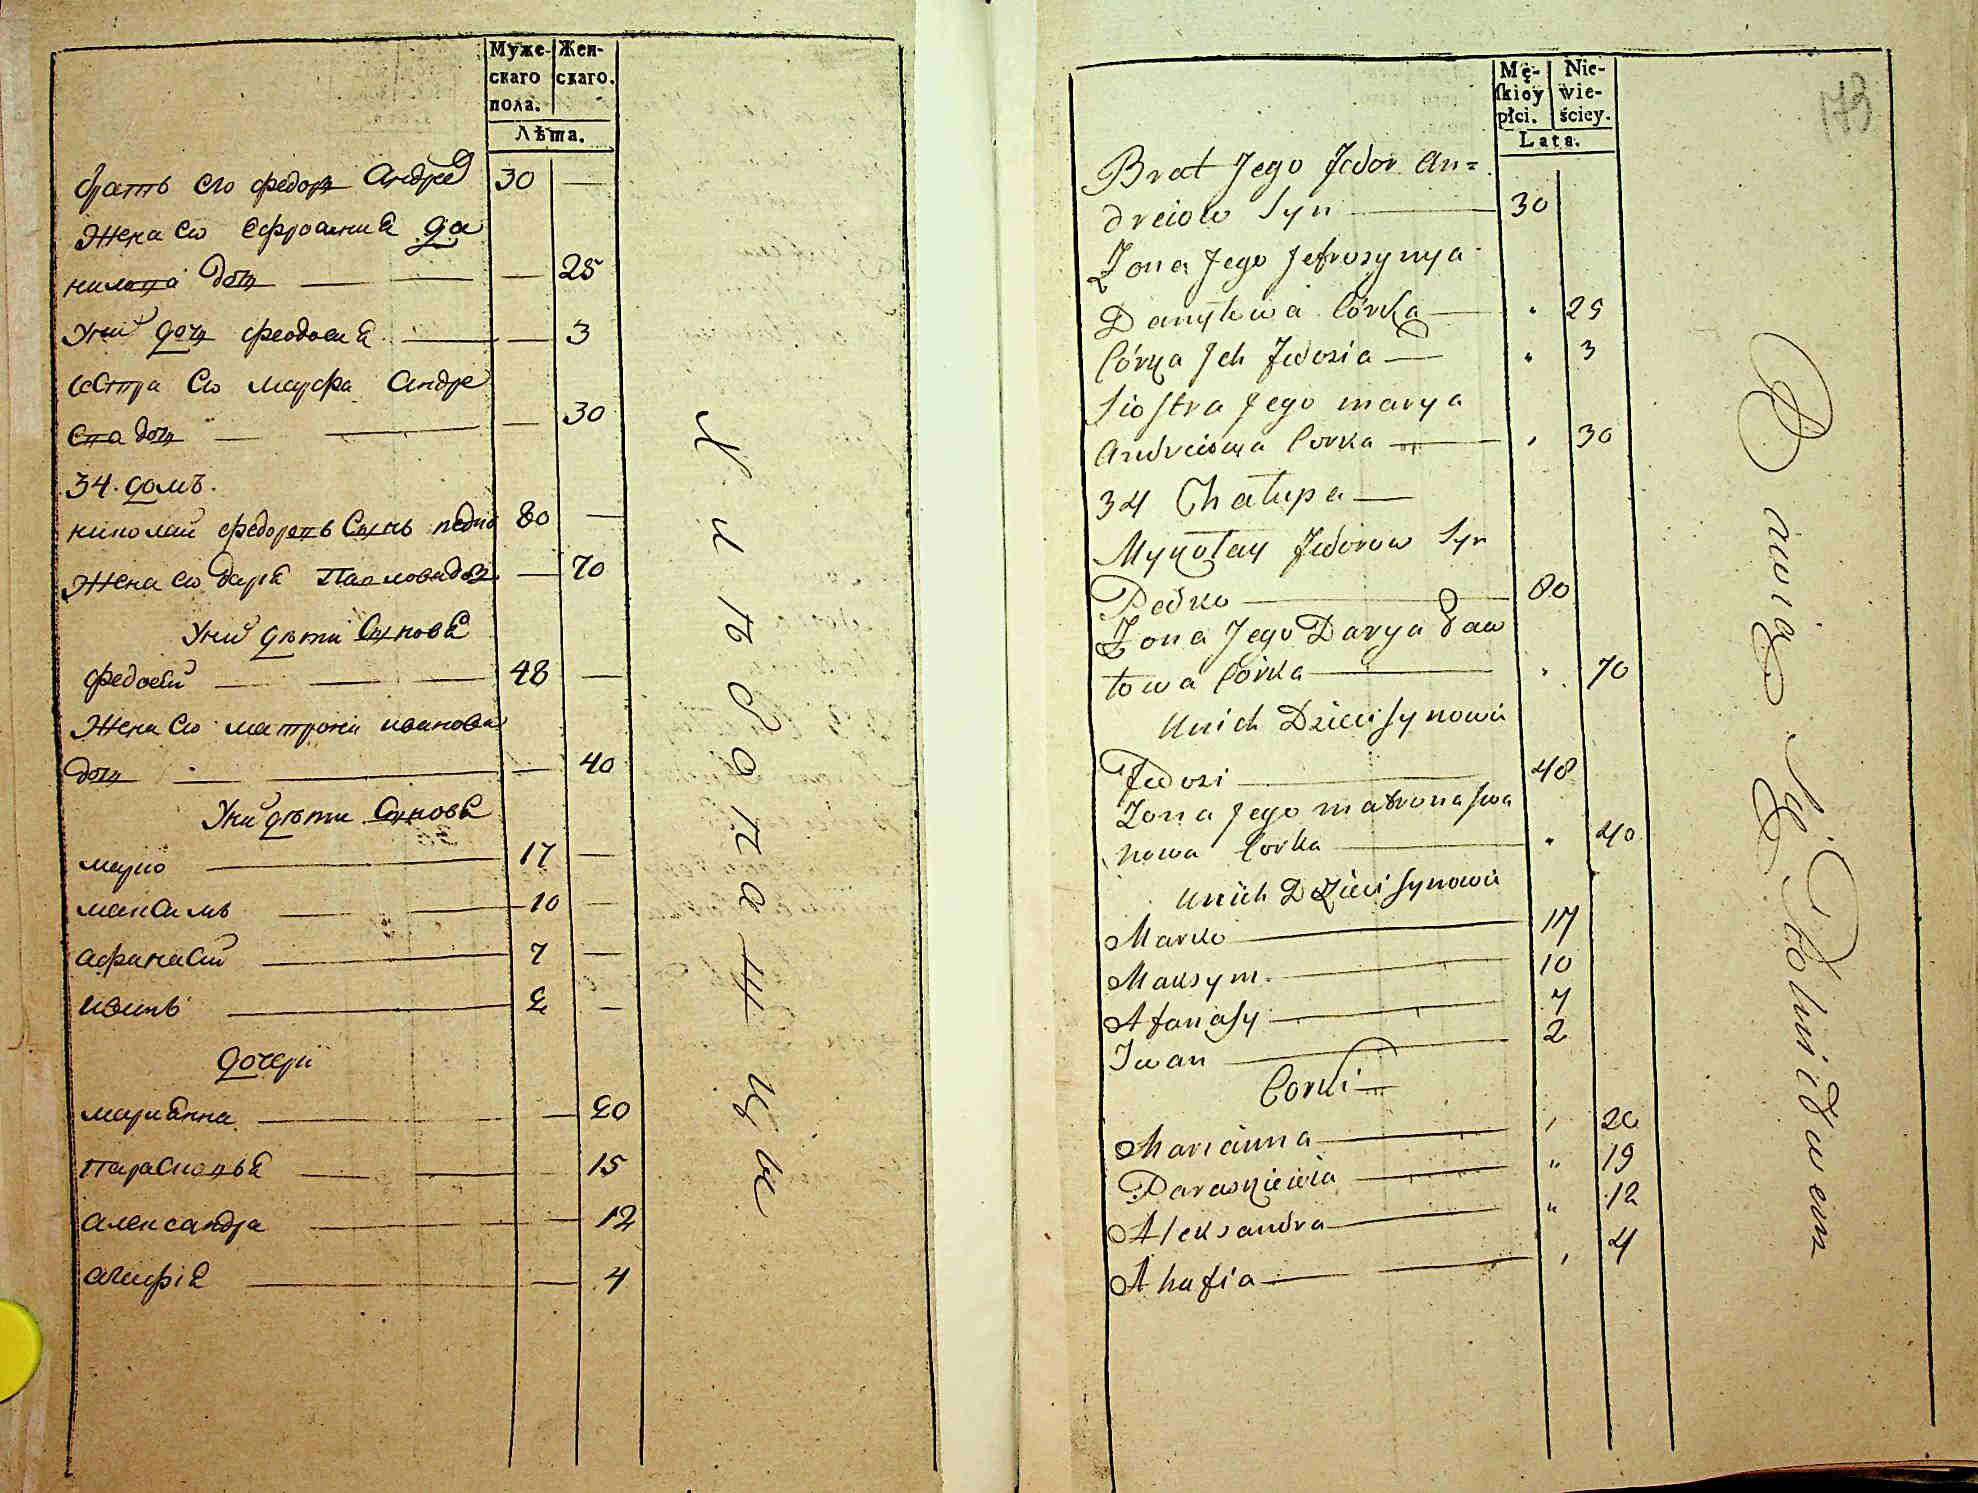 Муже-
скаго
пола.
Жен-
скаго.
Лѣта.
братъ его федоръ Андрей 30 —
Жена его Ефросиния Да
нилова дочь — — 25
Уних дочь феодосия — — 3
Сестра его марфа Андре
ева дочь — — 30
34. домъ.
николай федоровъ Сынъ педко 80 —
Жена его дария Павлова доч — 70
Уних дѣти Сыновя
федосей — 48 —
Жена его матрона иванова
дочь — — 40
Уних дѣти Сыновя
марко — 17 —
максимъ — 10 —
афанасий — 7 —
иванъ — 2 —
дочери
марианна — — 20
Парасковья — — 15
александра — — 12
агафія — — 4
Хлѣбопашцы
173
Mę-
skiey
płci.
Nie-
wie-
ściey.
Lata.
Brat Jego Fedor An=
dreiow Syn — 30
Żona Jego Jefrosynya
Danyłowa Córka — " 25
Córka Jch Fedosia — " 3
Siostra Jego marya
Andreiowa Corka — " 30
34 Chałupa —
Mykołay Fedorow Syn
Pedko — 80
Żona Jego Darya Paw
łowa Córka — " 70
Unich Dzieci Synowie
Fedosi — 48
Żona Jego matrona Jwa
nowa Corka — " 40
Unich Dzieci Synowie
Marko — 17
Maksym. — 10
Afanasy — 7
Iwan — 2
Corki —
Marianna — " 20
Paraskiewia — " 15
Aleksandra — " 12
Ahafia — " 4
Bawią Się Rolnictwem